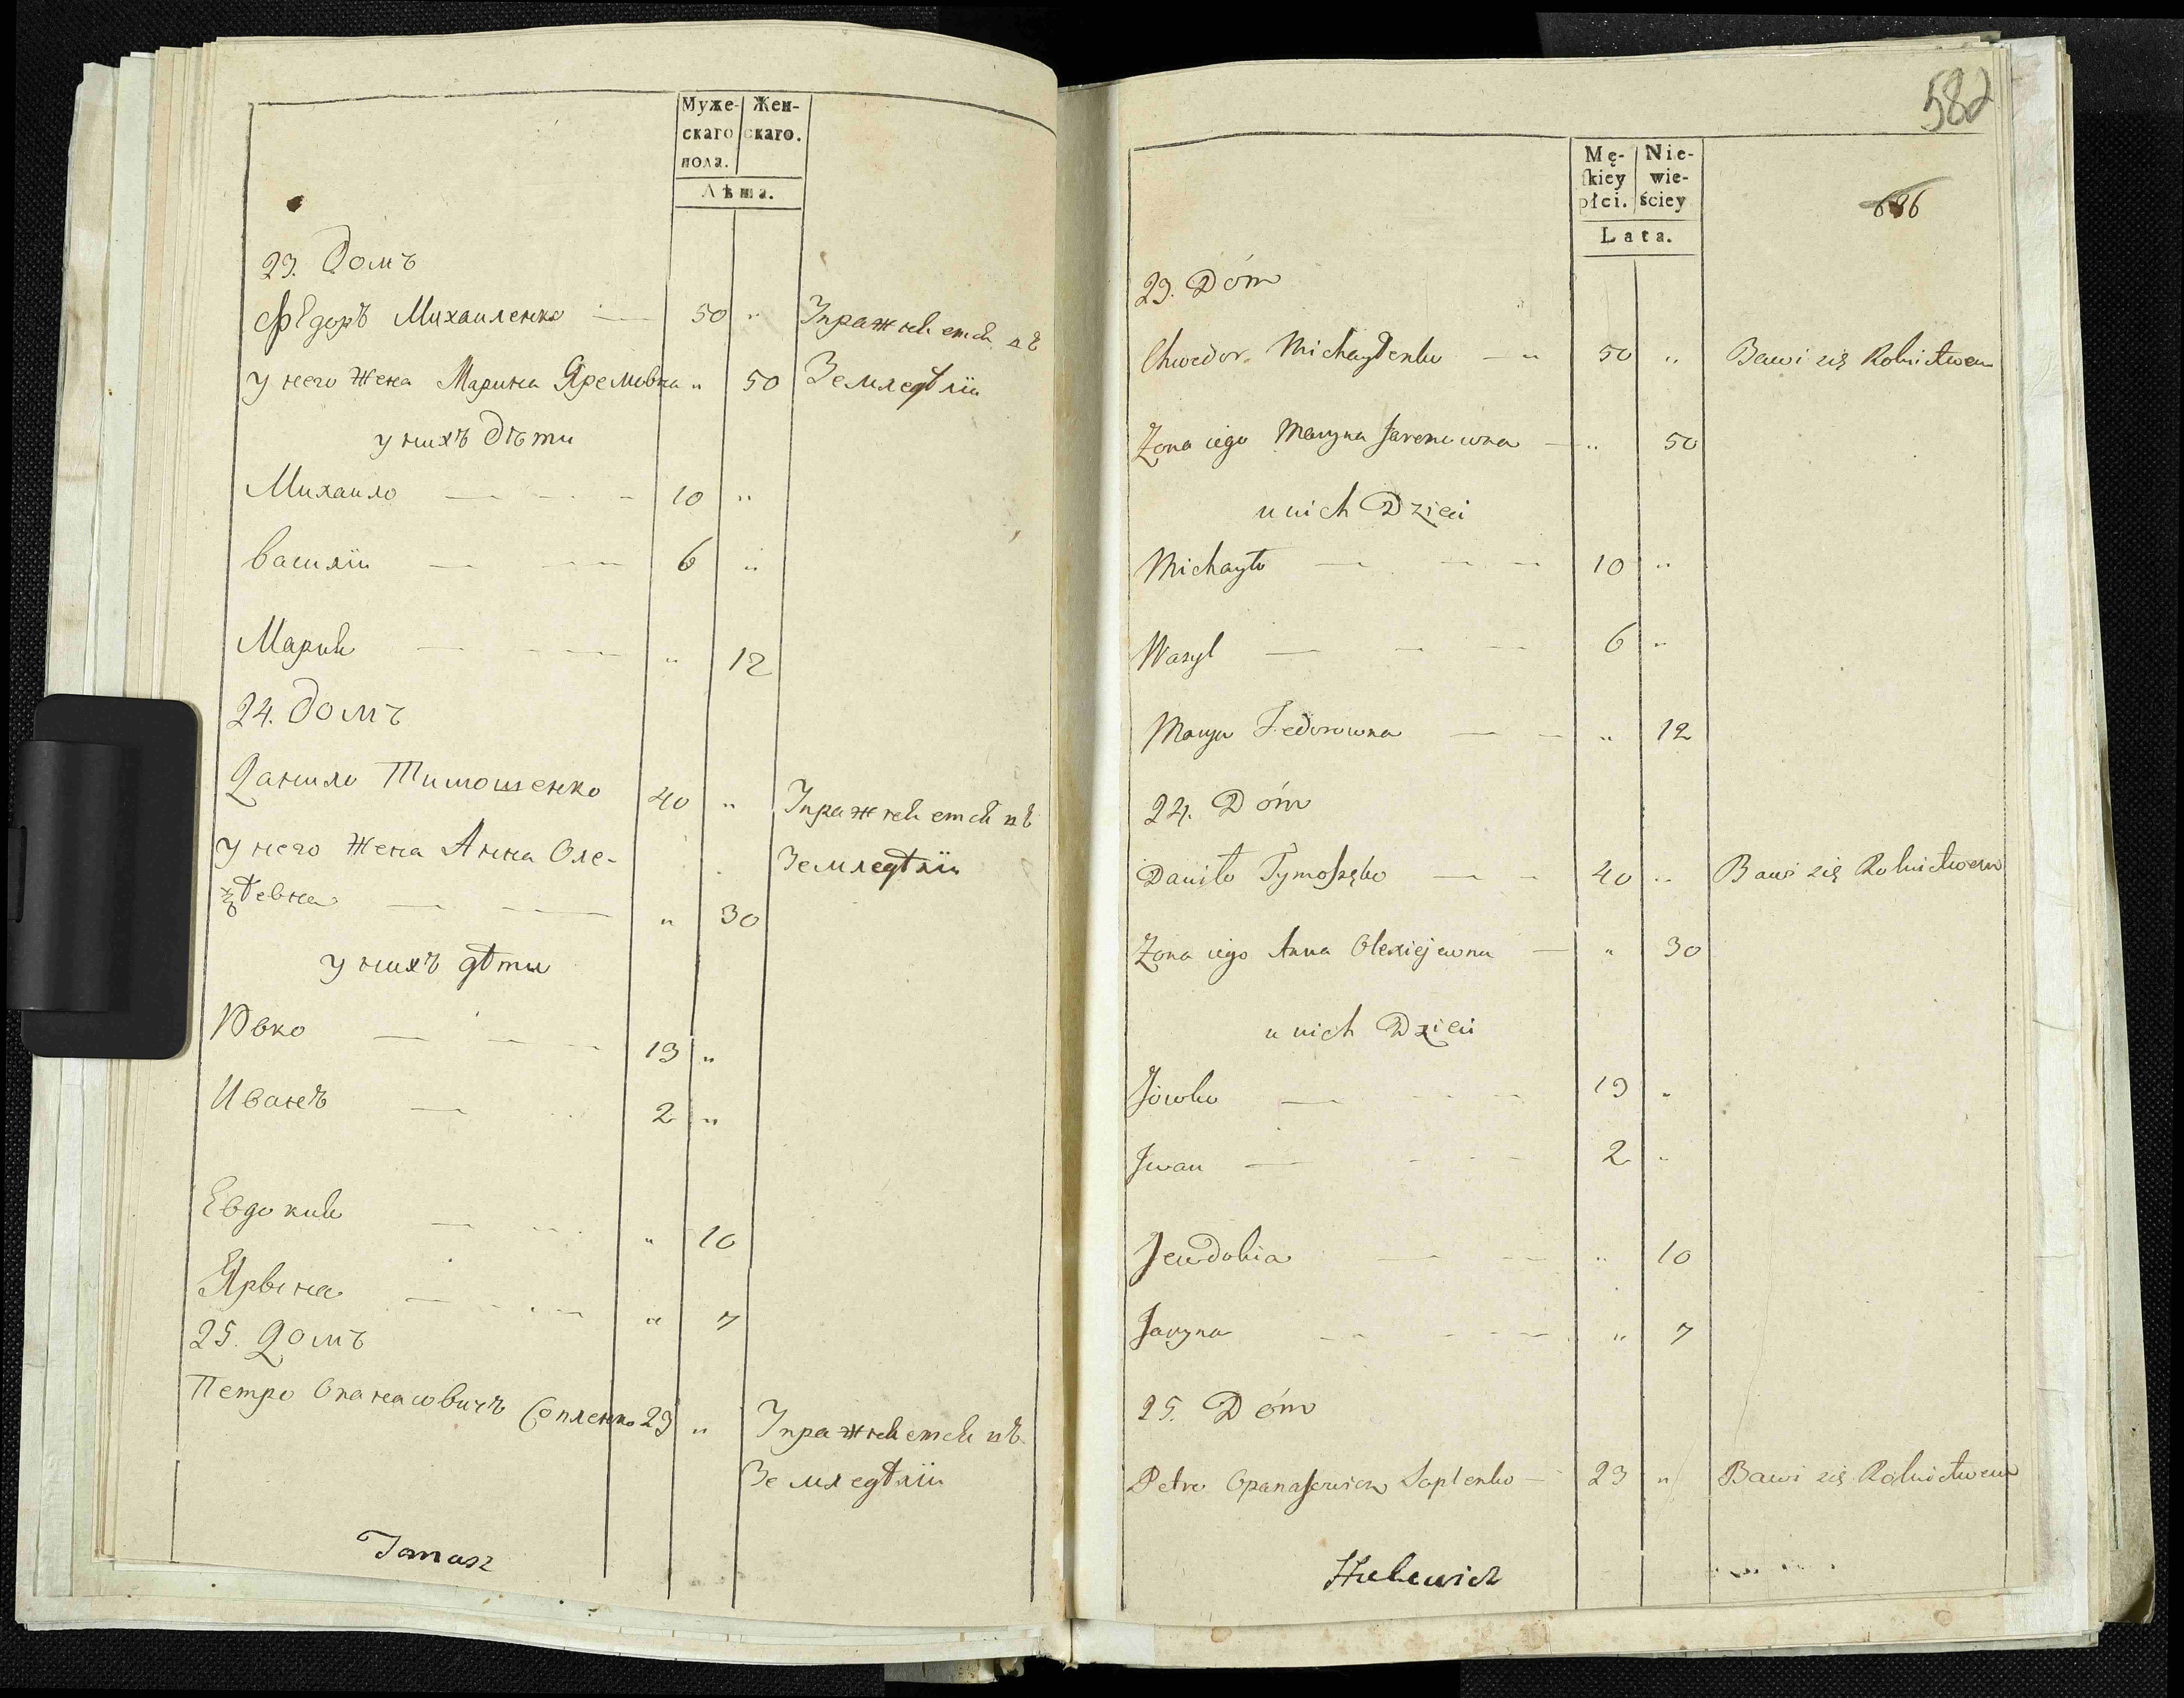 Муже- Жен-
скаго скаго.
пола.
Лѣта.
23. Домъ
Ѳедоръ Михайленко — 50 " Упражняется въ
у него жена Марина Яремовна " 50 Земледѣліи
у нихъ Дѣти
Михайло — — — 10 "
Василій — — — 6 "
Марія — — — " 12
24. Домъ
Данило Тимошенко 40 " Упражняется въ
у него жена Анна Оле- Земледѣліи
ѯѣевна — — " 30
у нихъ дѣти
Ювко — — — 13 "
Иванъ — — 2 "
Евдокия — — " 10
Ярына — — — " 7
25. Домъ
Петро Опанасовичъ Сопленко 23 " Упражняется въ
Земледѣліи
Tomasz
582
Mę- Nie-
skiey wie-
płci. ściey
Lata.
686
23. Dóm
Chwedor Michayłenko — 50 " Bawi się Rolnictwem
Zona iego Maryna Jaremowna — " 50
u nich Dzieci
Michayło — — — 10 "
Wasyl — — — 6 "
Marya Fedorowna — — " 12
24. Dóm
Daniło Tymoszęko — — 40 " Bawi się Rolnictwem
Zona iego Anna Olexiejewna — " 30
u nich Dzieci
Jówko — — — 13 "
Iwan — — — 2 "
Jewdokia — — " 10
Jaryna — — — " 7
25. Dóm
Petro Opanasowicz Soplenko — 23 " Bawi się Rolnictwem
Hulewicz